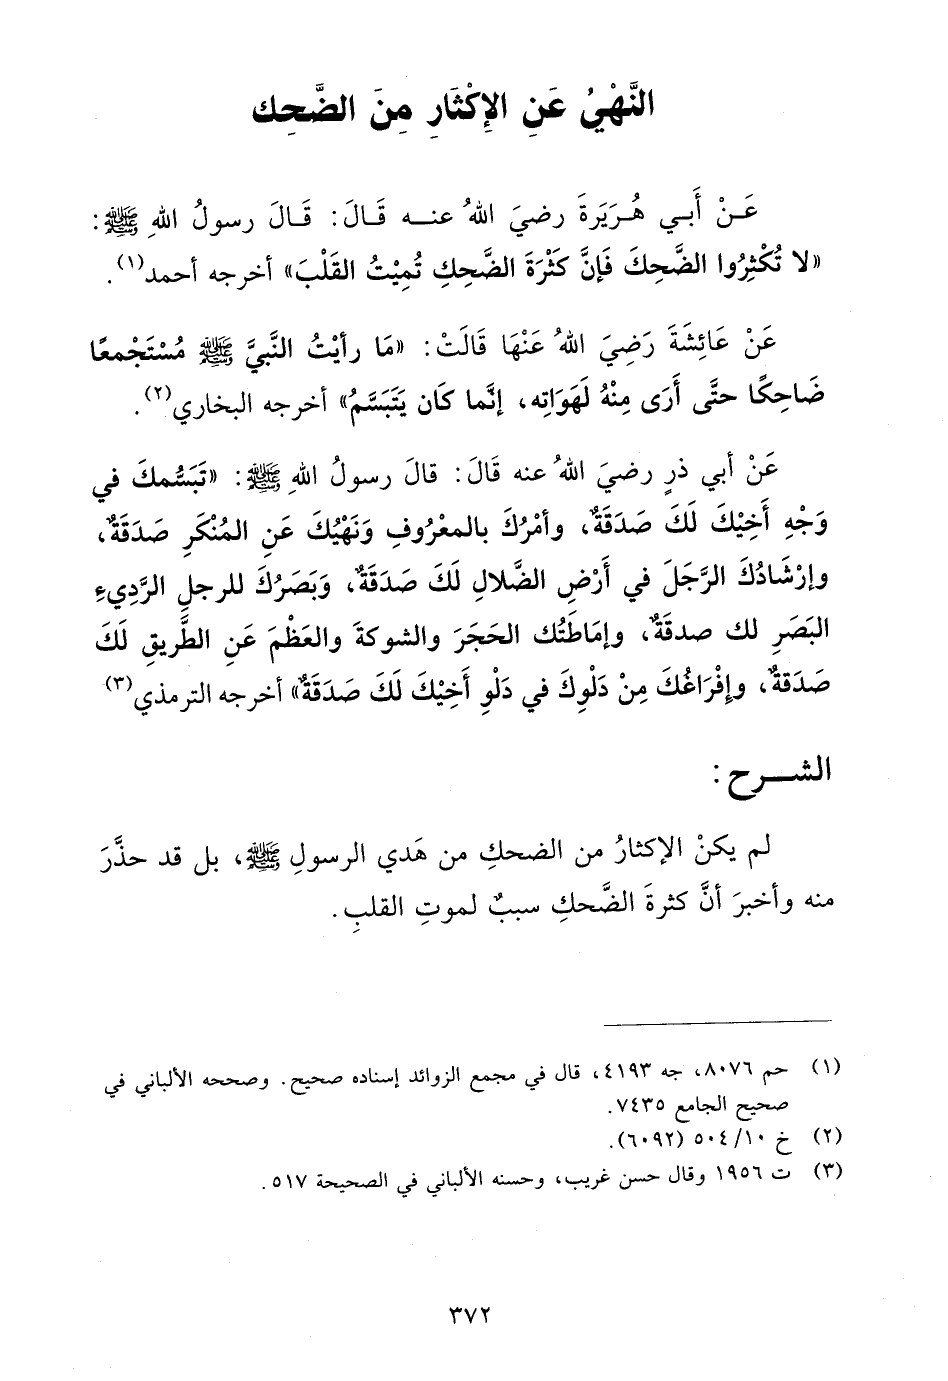 النَّهْيُ عَنِ الإِكْثَارِ مِنَ الضَّحِك
عَـنْ أَبـي هُـرَيَرةَ رضيَ اللهُ عنـه قَـالَ: قَـالَ رسولُ اللهِ ﷺ:
«لا تُكْثِرُوا الضَّحِكَ فَإنَّ كَثْرَةَ الضَّحِكِ تُمِيْتُ القَلْبَ» أخرجه أحمد(١).
عَنْ عَائِشَةَ رَضِيَ اللهُ عَنْهَا قَالَتْ: «مَا رأيْتُ النَّبيَّ ﷺ مُسْتَجْمعًا
ضَاحِكًا حتَّى أَرَى مِنْهُ لَهَوَاتِه، إنَّما كَان يَتَبَسَّمُ» أخرجه البخاري(٢).
عَنْ أبي ذرٍ رضيَ اللهُ عنه قَالَ: قالَ رسولُ اللهِ ﷺ: «تَبَسُّمكَ في
وَجْهِ أَخِيْكَ لَكَ صَدَقَةٌ، وأمْرُكَ بالمعْروفِ وَنَهْيُكَ عَنِ المُنْكَرِ صَدَقَةٌ،
وإرْشَادُكَ الرَّجَلَ في أَرْضِ الضَّلالِ لَكَ صَدَقَةٌ، وَبَصَرُكَ للرجلِ الرَّدِيءِ
البَصَرِ لك صدقَةٌ، وإمَاطَتُك الحَجَرَ والشوكةَ والعَظْمَ عَنِ الطَّريقِ لَكَ
صَدَقةٌ، وإفْرَاغُكَ مِنْ دَلْوِكَ في دَلْوِ أَخِيْكَ لَكَ صَدَقَةٌ» أخرجه الترمذي(٣)
الشـــرح:
لم يكنْ الإكثارُ من الضحكِ من هَدي الرسولِ ﷺ، بل قد حذَّرَ
منه وأخبرَ أنَّ كثرةَ الضَّحكِ سببٌ لموتِ القلبِ.
(١) حم ٨٠٧٦، جه ٤١٩٣، قال في مجمع الزوائد إسناده صحيح. وصححه الألباني في
صحيح الجامع ٧٤٣٥.
(٢) خ ٥٠٤/١٠ (٦٠٩٢).
(٣) ت ١٩٥٦ وقال حسن غريب، وحسنه الألباني في الصحيحة ٥١٧.
٣٧٢